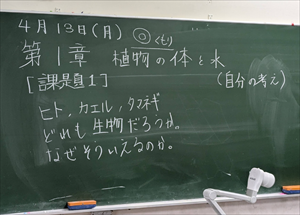 4月13日(月) ◎くもり
第1章 植物の体と水
[課題1] (自分の考え)
ヒト,カエル,タマネギ
どれも生物だろうか。
なぜそういえるのか。